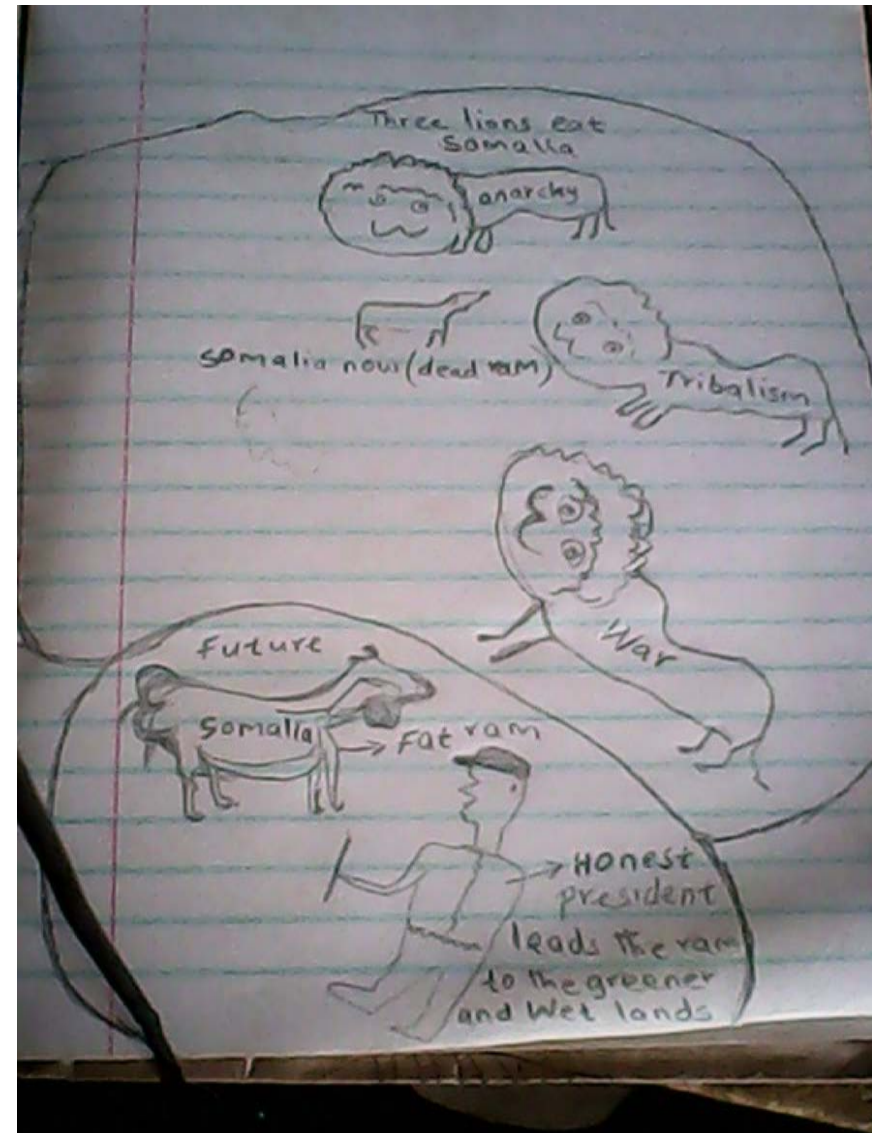 Three lions eat
Somalia
anarchy
Somalia now (dead ram)
Tribalism
War
Future
Somalia
Fat ram
Honest
president
leads the ram
to the greener
and Wet lands